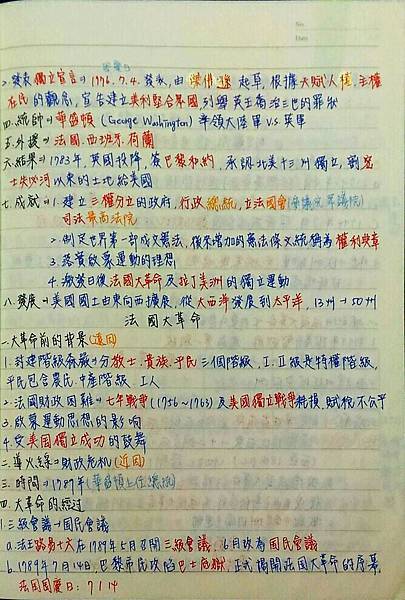 No.
Date
國慶日
2.發表獨立宣言→1776.7.4.發表,由傑佛遜起草,根據天賦人權,主權
在民的觀念,宣告建立美利堅合眾國,列舉英王喬治三世的罪狀
四.統帥→華盛頓(George Washington)率領大陸軍v.s.英軍
五.外援→法國.西班牙.荷蘭
六.結果→1783年,英國投降,簽巴黎和約,承認北美十三州獨立,劃密
士失必河以東的土地給美國
七.成就→1.建立三權分立的政府,行政總統,立法國會(參議院.眾議院)
司法最高法院
2.制定世界第一部成文憲法,後來增加的憲法條文統稱為權利典章
3.落實啟蒙運動的理想
4.激發日後法國大革命及拉丁美洲的獨立運動
八.發展→美國國土由東向西擴展,從大西洋發展到太平洋,13州→50州
法國大革命
一.大革命前的背景(遠因)
1.封建階級分教士.貴族.平民三個階級,I.II級是特權階級,
平民包含農民.中產階級.工人
2.法國財政困難→七年戰爭(1756~1763)及美國獨立戰爭耗損,賦稅不公平
3.啟蒙運動思想的影響
4.受美國獨立成功的鼓舞
二.導火線→財政危機(近因)
三.時間→1789年(華盛頓上任總統)
四.大革命的經過
1.三級會議→國民會議
a.法王路易十六在1789年5月召開三級會議,6月改為國民會議
b.1789年7月14日,巴黎市民攻陷巴士底獄,正式揭開法國大革命的序幕,
法國國慶日:7/14